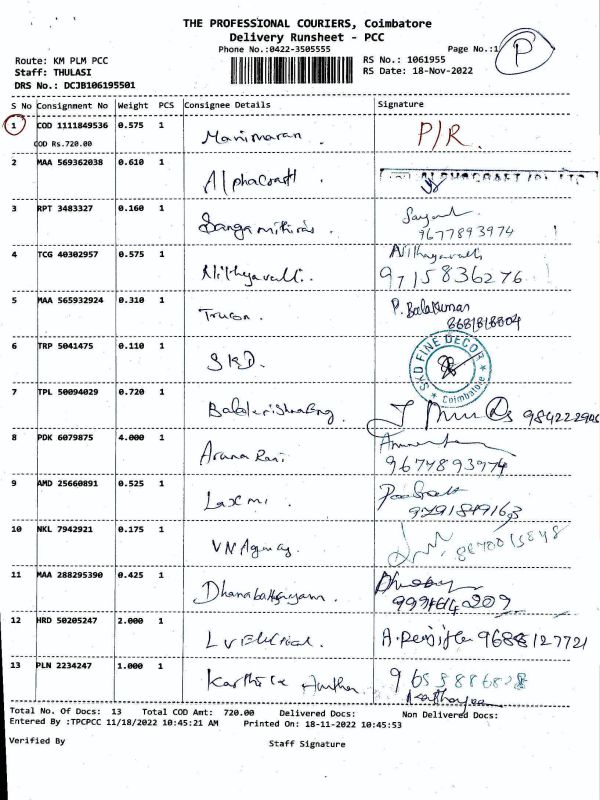 THE PROFESSIONAL COURIERS, Coimbatore
Delivery Runsheet - PCC
Phone No.:0422-3505555
Page No.:1
P
Route: KM PLM PCC
Staff: THULASI
DRS No.: DCJB106195501
RS No.: 1061955
RS Date: 18-Nov-2022
S No Consignment No Weight PCS Consignee Details Signature
1 COD 1111849536 0.575 1 Manimaran P/R
COD Rs.720.00
2 MAA 569362038 0.610 1 Alphacraft
3 RPT 3483327 0.160 1
9677893974
4 TCG 40302957 0.575 1 Nithyavalli Nithyavalli
9715836276
5 MAA 565932924 0.310 1 Trucon P. Balakumar
8681818804
6 TRP 5041475 0.110 1 SKD. SKD FINE DECOR
Coimbatore
7 TPL 50094029 0.720 1
8 PDK 6079875 4.000 1 Aruna Rani
9677893974
9 AMD 25660891 0.525 1 Laxmi
9791849163
10 NKL 7942921 0.175 1 VN Agency
11 MAA 288295390 0.425 1
12 HRD 50205247 2.000 1 LV Electrical. 9688127721
13 PLN 2234247 1.000 1
Total No. Of Docs: 13 Total COD Amt: 720.00 Delivered Docs: Non Delivered Docs:
Entered By :TPCPCC 11/18/2022 10:45:21 AM Printed On: 18-11-2022 10:45:53
Verified By
Staff Signature